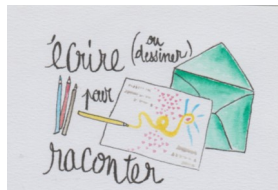 écrire (ou dessiner)
pour
raconter